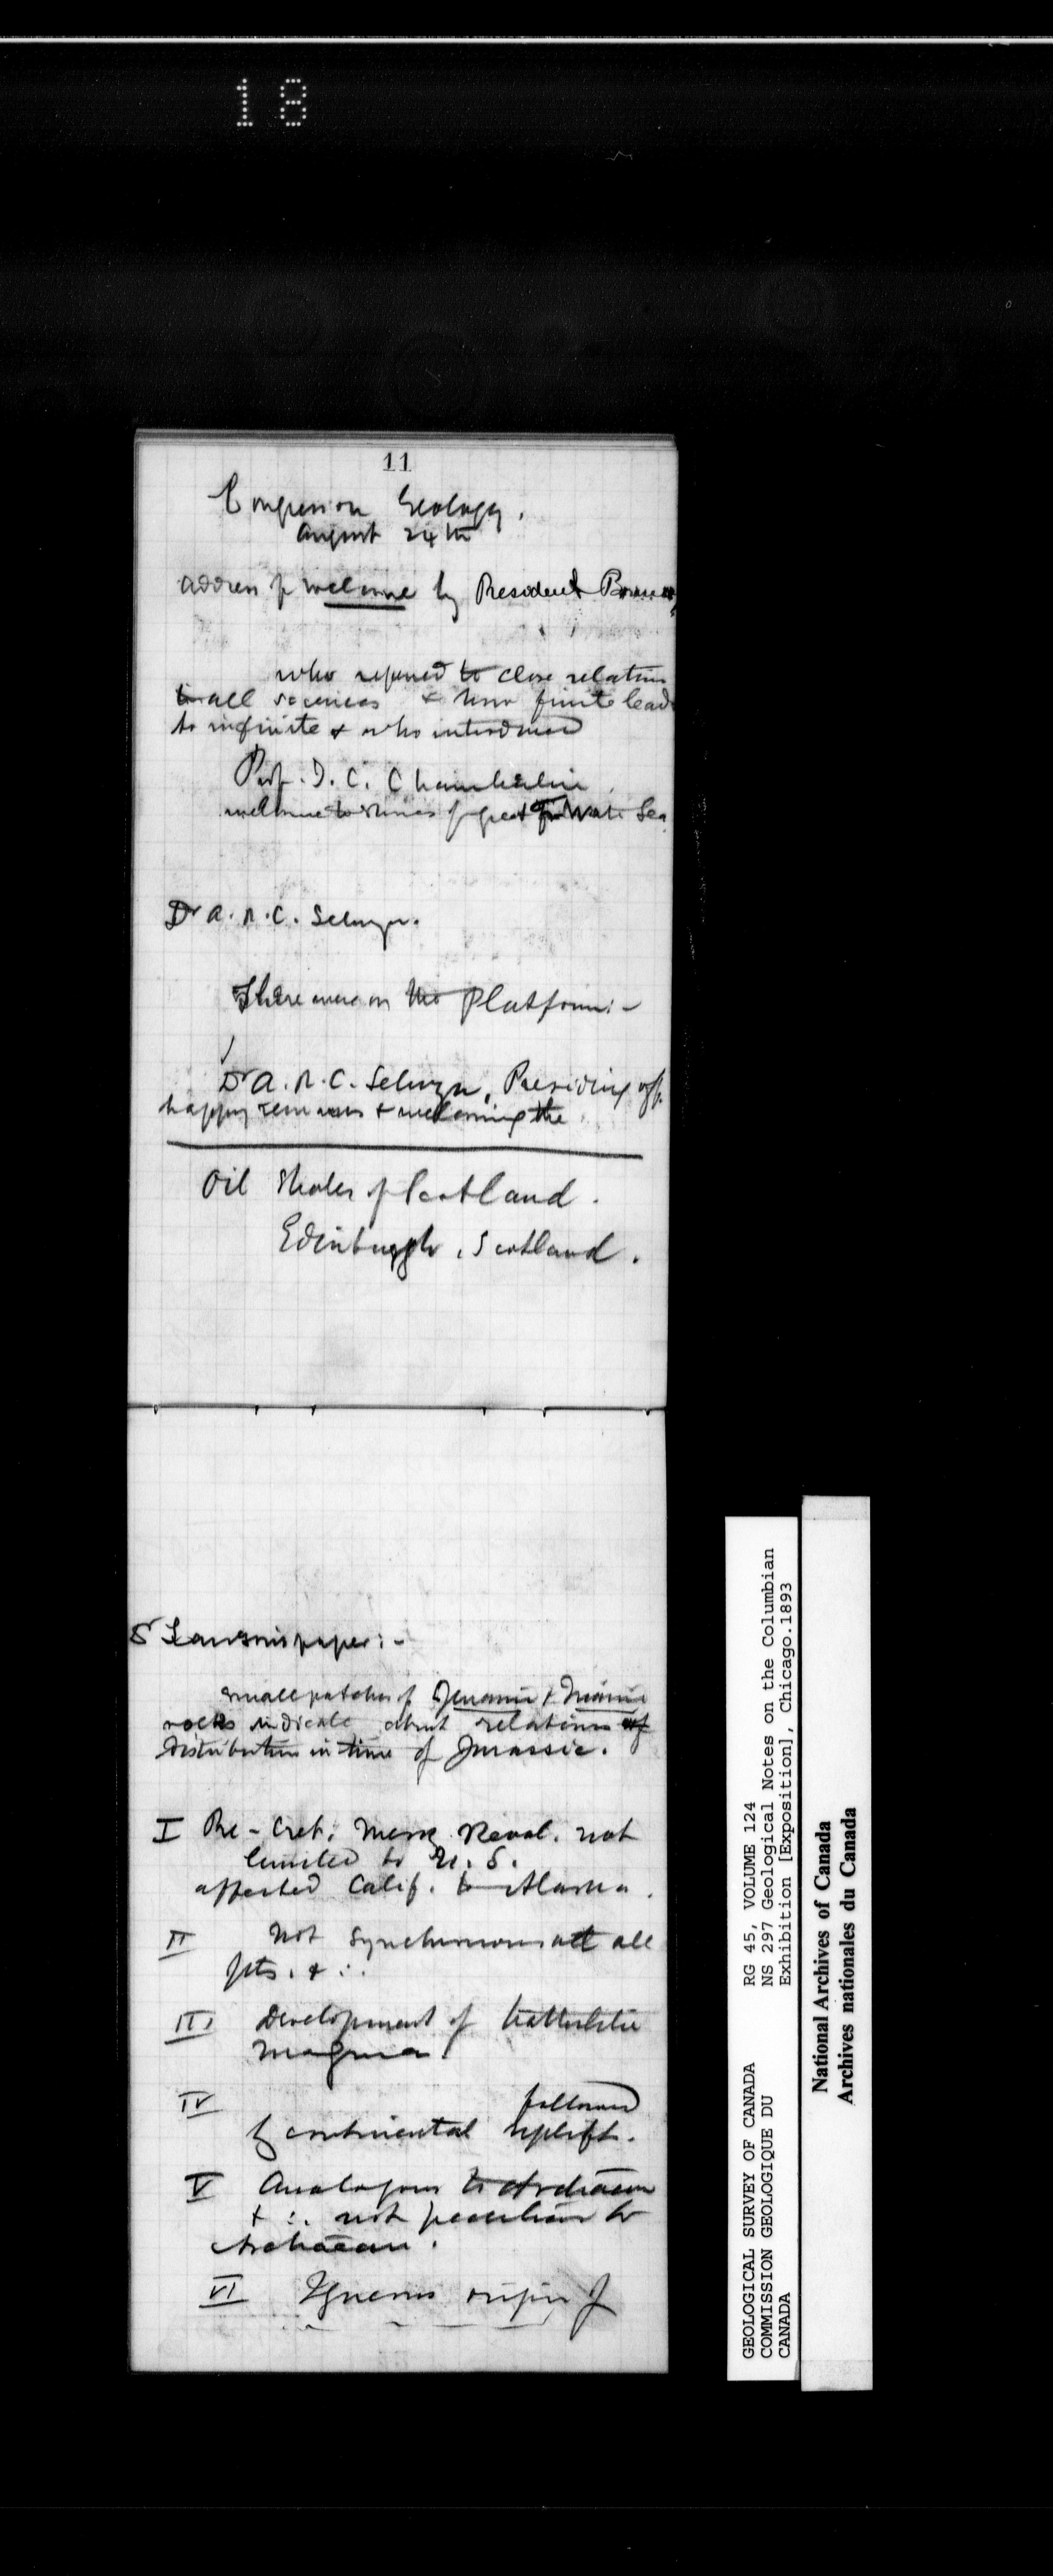 18
11
Congress on Geology.
August 24th
address of welcome by President Bonney
who referred to close relation
to all sciences & how finite leads
to infinite & who introduced
Prof. T. C. Chamberlin
welcome to shores of great Sea
Dr A. R. C. Selwyn.
There were on the Platform:-
Dr A. R. C. Selwyn, Presiding off.
happy remarks & welcoming the
Oil Shales of Scotland.
Edinburgh, Scotland.
Dr Lawson's paper:-
small patches of & Triassic
rocks indicate about relations of
distribution in time of Jurassic.
I Pre-Cret. Meso. Revol. not
limited to U. S.
affected Calif. to Alaska.
II Not synchronous at all
pts. & ∴
III Development of batholitic
magma.
IV followed
by continental uplift.
V Analogous to Archaean
& ∴ not peculiar to
Archaean.
VI Igneous origin of
GEOLOGICAL SURVEY OF CANADA RG 45, VOLUME 124
COMMISSION GEOLOGIQUE DU NS 297 Geological Notes on the Columbian
CANADA Exhibition [Exposition], Chicago.1893
National Archives of Canada
Archives nationales du Canada